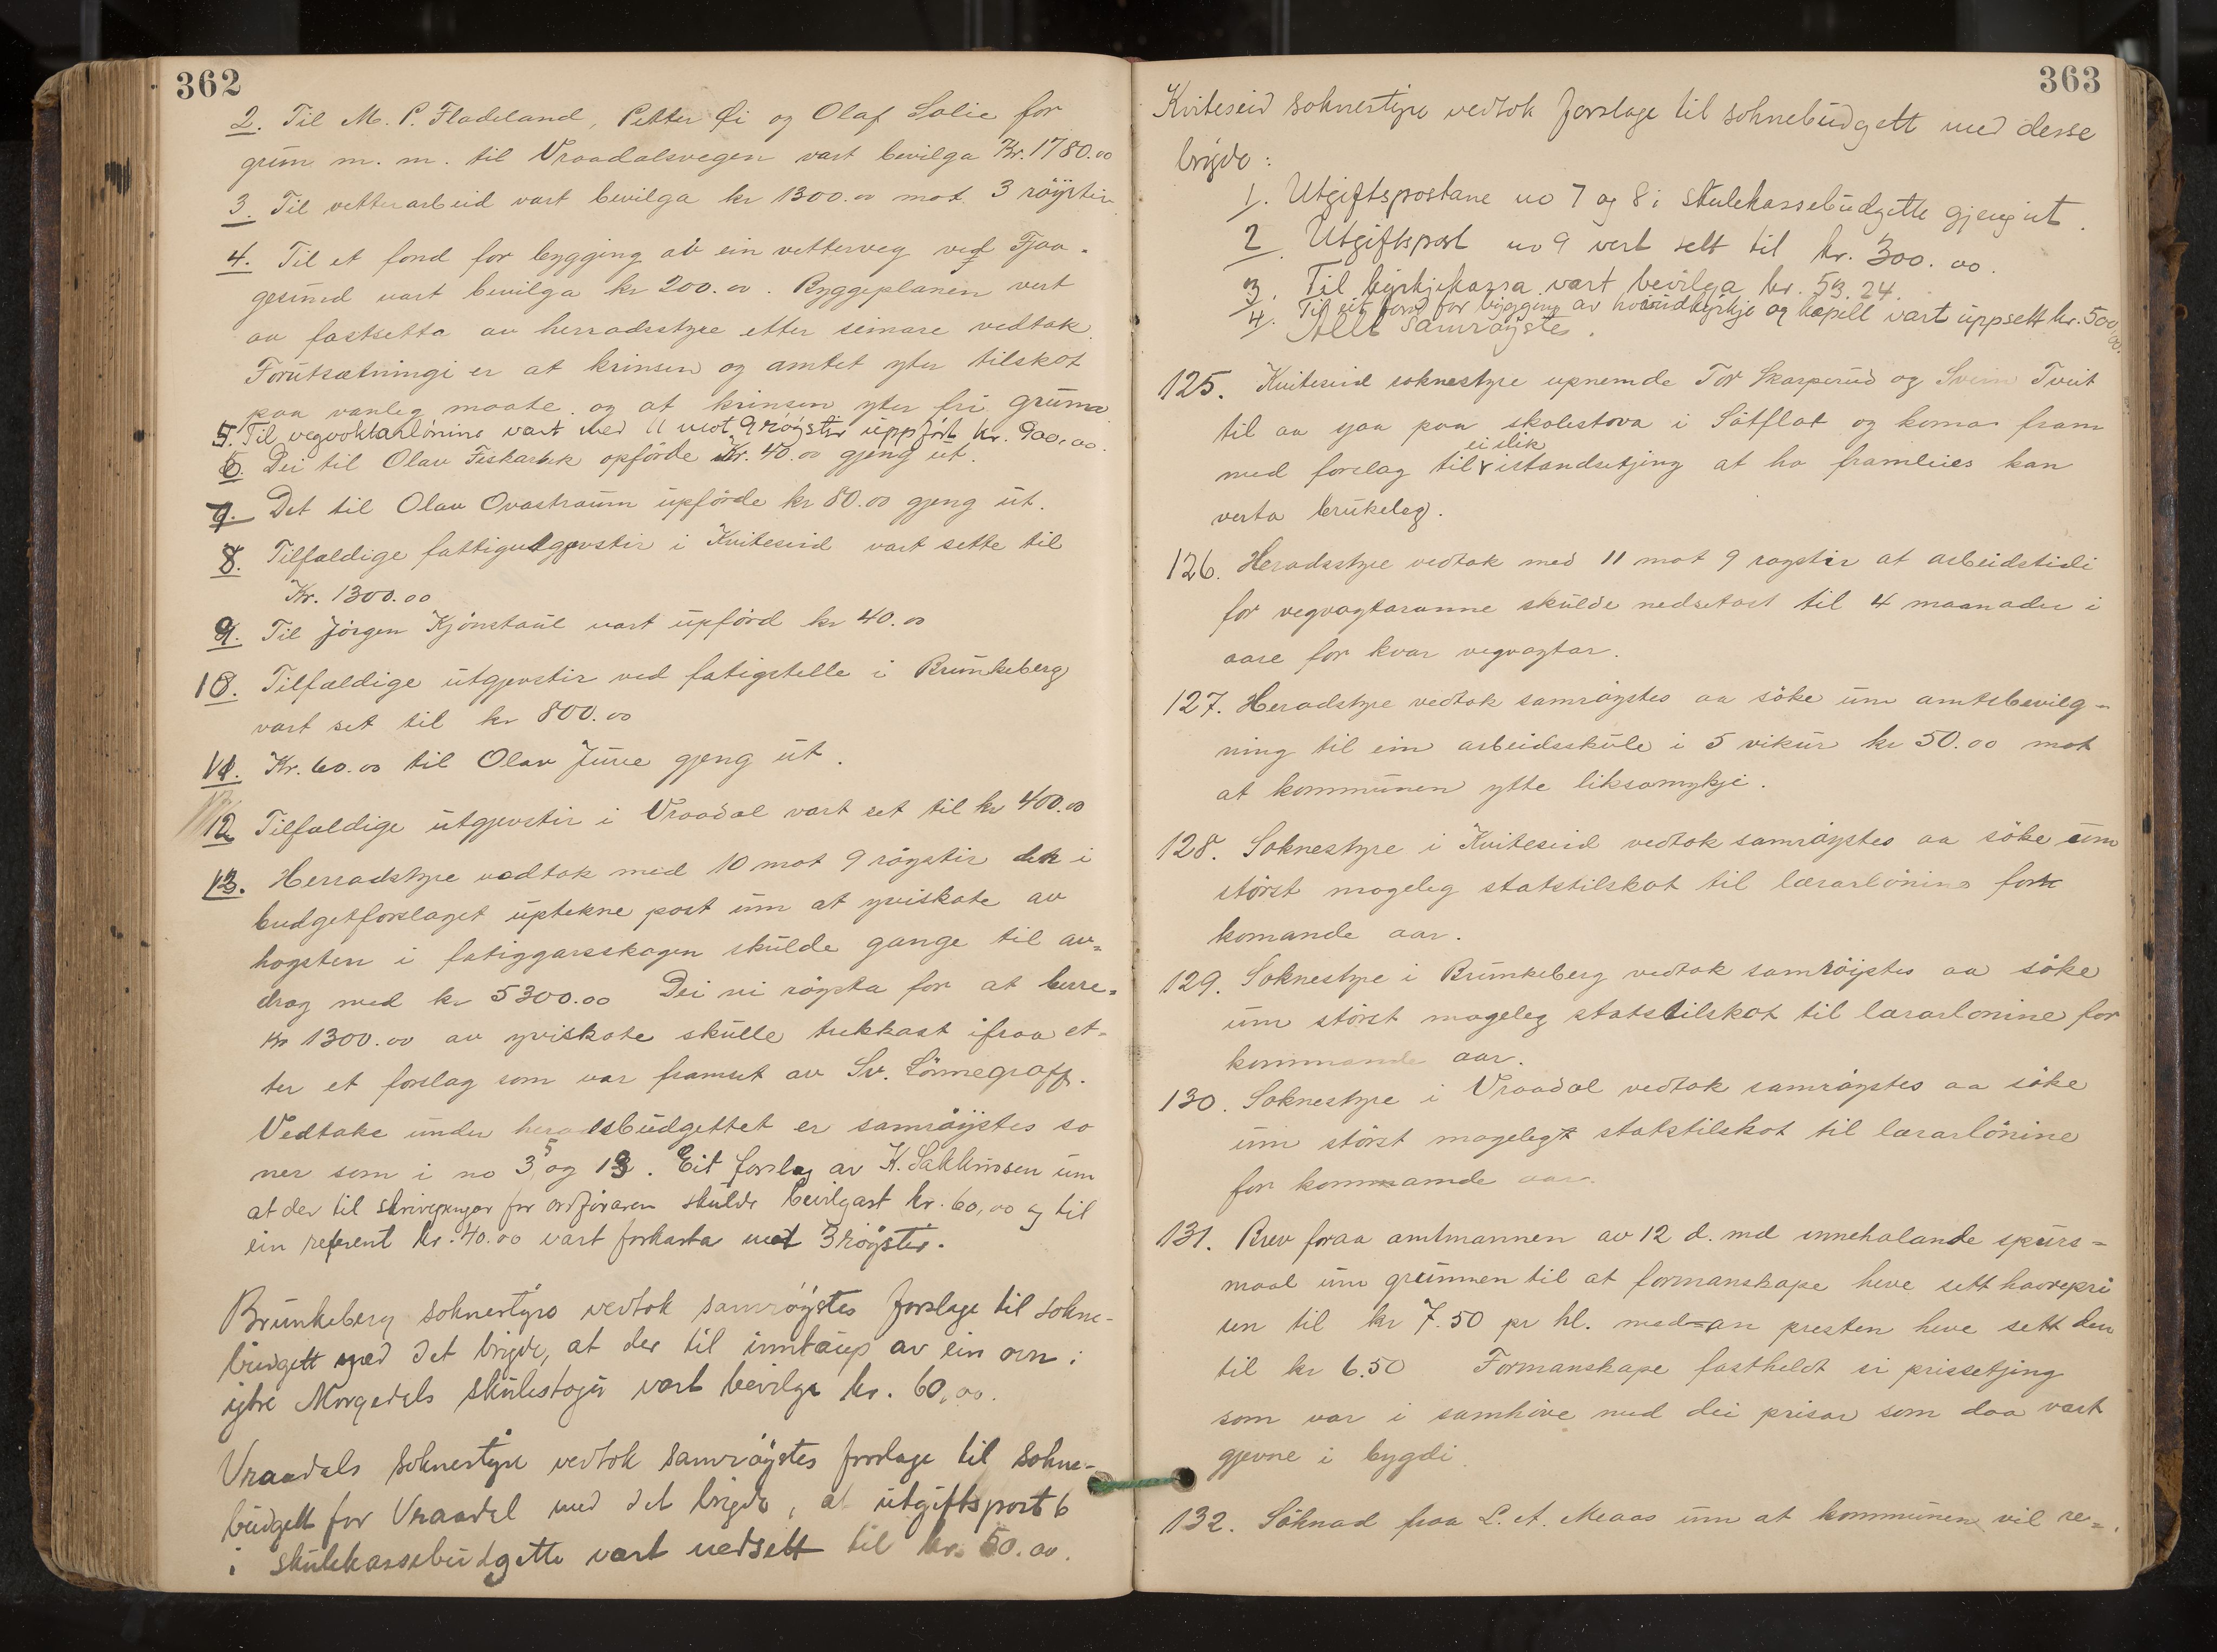 362
2. Til M. P. Fladeland, Petter Öi og Olaf Solie for
grun m. m. til Vraadalsvegen vart bevilga Kr. 1780.00
3. Til vetterarbeid vart bevilga kr 1300.00 mot 3 röyster
4. Til et fond for bygging av ein vetterveg ved Fjaa-
gesund vart bevilga kr 200.00. Byggeplanen vert
aa fastsetta av herradsstyre etter seimare vedtak.
Forutsætningi er at krinsen og amtet yter tilskot
paa vanleg maate og at krinsen yter fri grunn
5. Til vegvoktarlönine vart med 11 mot 9 röyster uppfört kr. 900.00.
6. Dei til Olav Fiskarbek opförde Kr. 40.00 gjeng ut.
7. Det til Olav Ovastraum upförde kr 80.00 gjeng ut.
8. Tilfældige fattigutgjevstir i Kviteseid vart sette til
Kr. 1300.00
9. Til Jörgen Kjönstaul vart upförd kr 40.00
10. Tilfældige utgjevstir ved fatigstelle i Brunkeberg
vart set til kr 800.00
11. Kr. 60.00 til Olav Juve gjeng ut.
12. Tilfaldige utgjevstir i Vraadal vart set til kr 400.00
13. Herradstyre vedtok med 10 mot 9 röystir den i
budgetforslaget uptekne post um at yviskote av
hogsten i fatiggarsskogen skulde gange til av=
drag med kr 5300.00 Dei ni röysta for at berre=
Kr 1300.00 av yviskote skulle trekkast ifraa et-
ter et forslag som var framset av Sv. Lönnegraff.
Vedtake under heradsbudgettet er samröystes so
ner som i no 3, 5 og 13. Eit forslag av K. Salkimsen um
at der til skrivepengar for ordföraren skulde bevilgast kr. 60,00 og til
ein referent kr. 40.00 vart forkasta mot 3 röyster.
Brunkeberg soknestyre vedtok samröystes forslage til sokne-
budgett med det brigde, at der til innkaup av ein ovn i
ytre Morgedals skulestogu vart bevilga kr. 60,00.
Vraadals soknestyre vedtok samröystes forslage til sokne-
budgett for Vraadal med det brigde, at utgiftspost 6
i skulekassebudgette vart nedsett til kr. 50.00.
363
Kviteseid soknestyre vedtok forslage til soknebudgett med desse
brigde:
1. Utgiftspostane no 7 og 8 i skulekassebudgette gjeng ut.
2. Utgiftspost no 9 vert sett til kr. 300.00.
3. Til kyrkjekassa vart bevilga kr. 53.24.
4. Til eit fond for bygging av hovudkyrkje og kapell vart uppsett kr. 500,00.
Allt samröystes.
125. Kviteseid soknestyre upnemde Tor Skarperud og Svein Tveit
til aa gaa paa skolestova i Sötflat og koma fram
med forslag til ei slik istandsetjing at ho framleies kan
verta brukeleg.
126. Heradsstyre vedtok med 11 mot 9 røystir at arbeidstidi
for vegvagtaranne skulde nedsetast til 4 maanader i
aare for kvar vegvagtar.
127. Heradstyre vedtok samröystes aa söke um amtsbevilg=
ning til ein arbeidsskule i 5 vikur kr 50.00 mot
at kommunen ytte liksomykje.
128. Soknestyre i Kviteseid vedtok samröystes aa söke um
störst mogeleg statstilskot til lærarlönine for
komande aar.
129. Soknestyre i Brunkeberg vedtok samröystes aa söke
um störst mogeleg statstilskot til lærarlonine for
kommande aar.
130. Soknestyre i Vraadal vedtok samröystes aa söke
um störst mogelegt statstilskot til lærarlönine
for kommande aar.
131. Brev foraa amtmannen av 12 d. md innehalande spurs=
maal um grunnen til at formanskape heve sett havrepri
sen til kr 7.50 pr hl. med-an presten heve sett den
til kr 6.50 Formanskape fastheldt si prissetjing
som var i samhöve med dei prisar som daa vart
gjevne i bygdi.
132. Söknad fraa L. A. Meaas um at kommunen vil re=